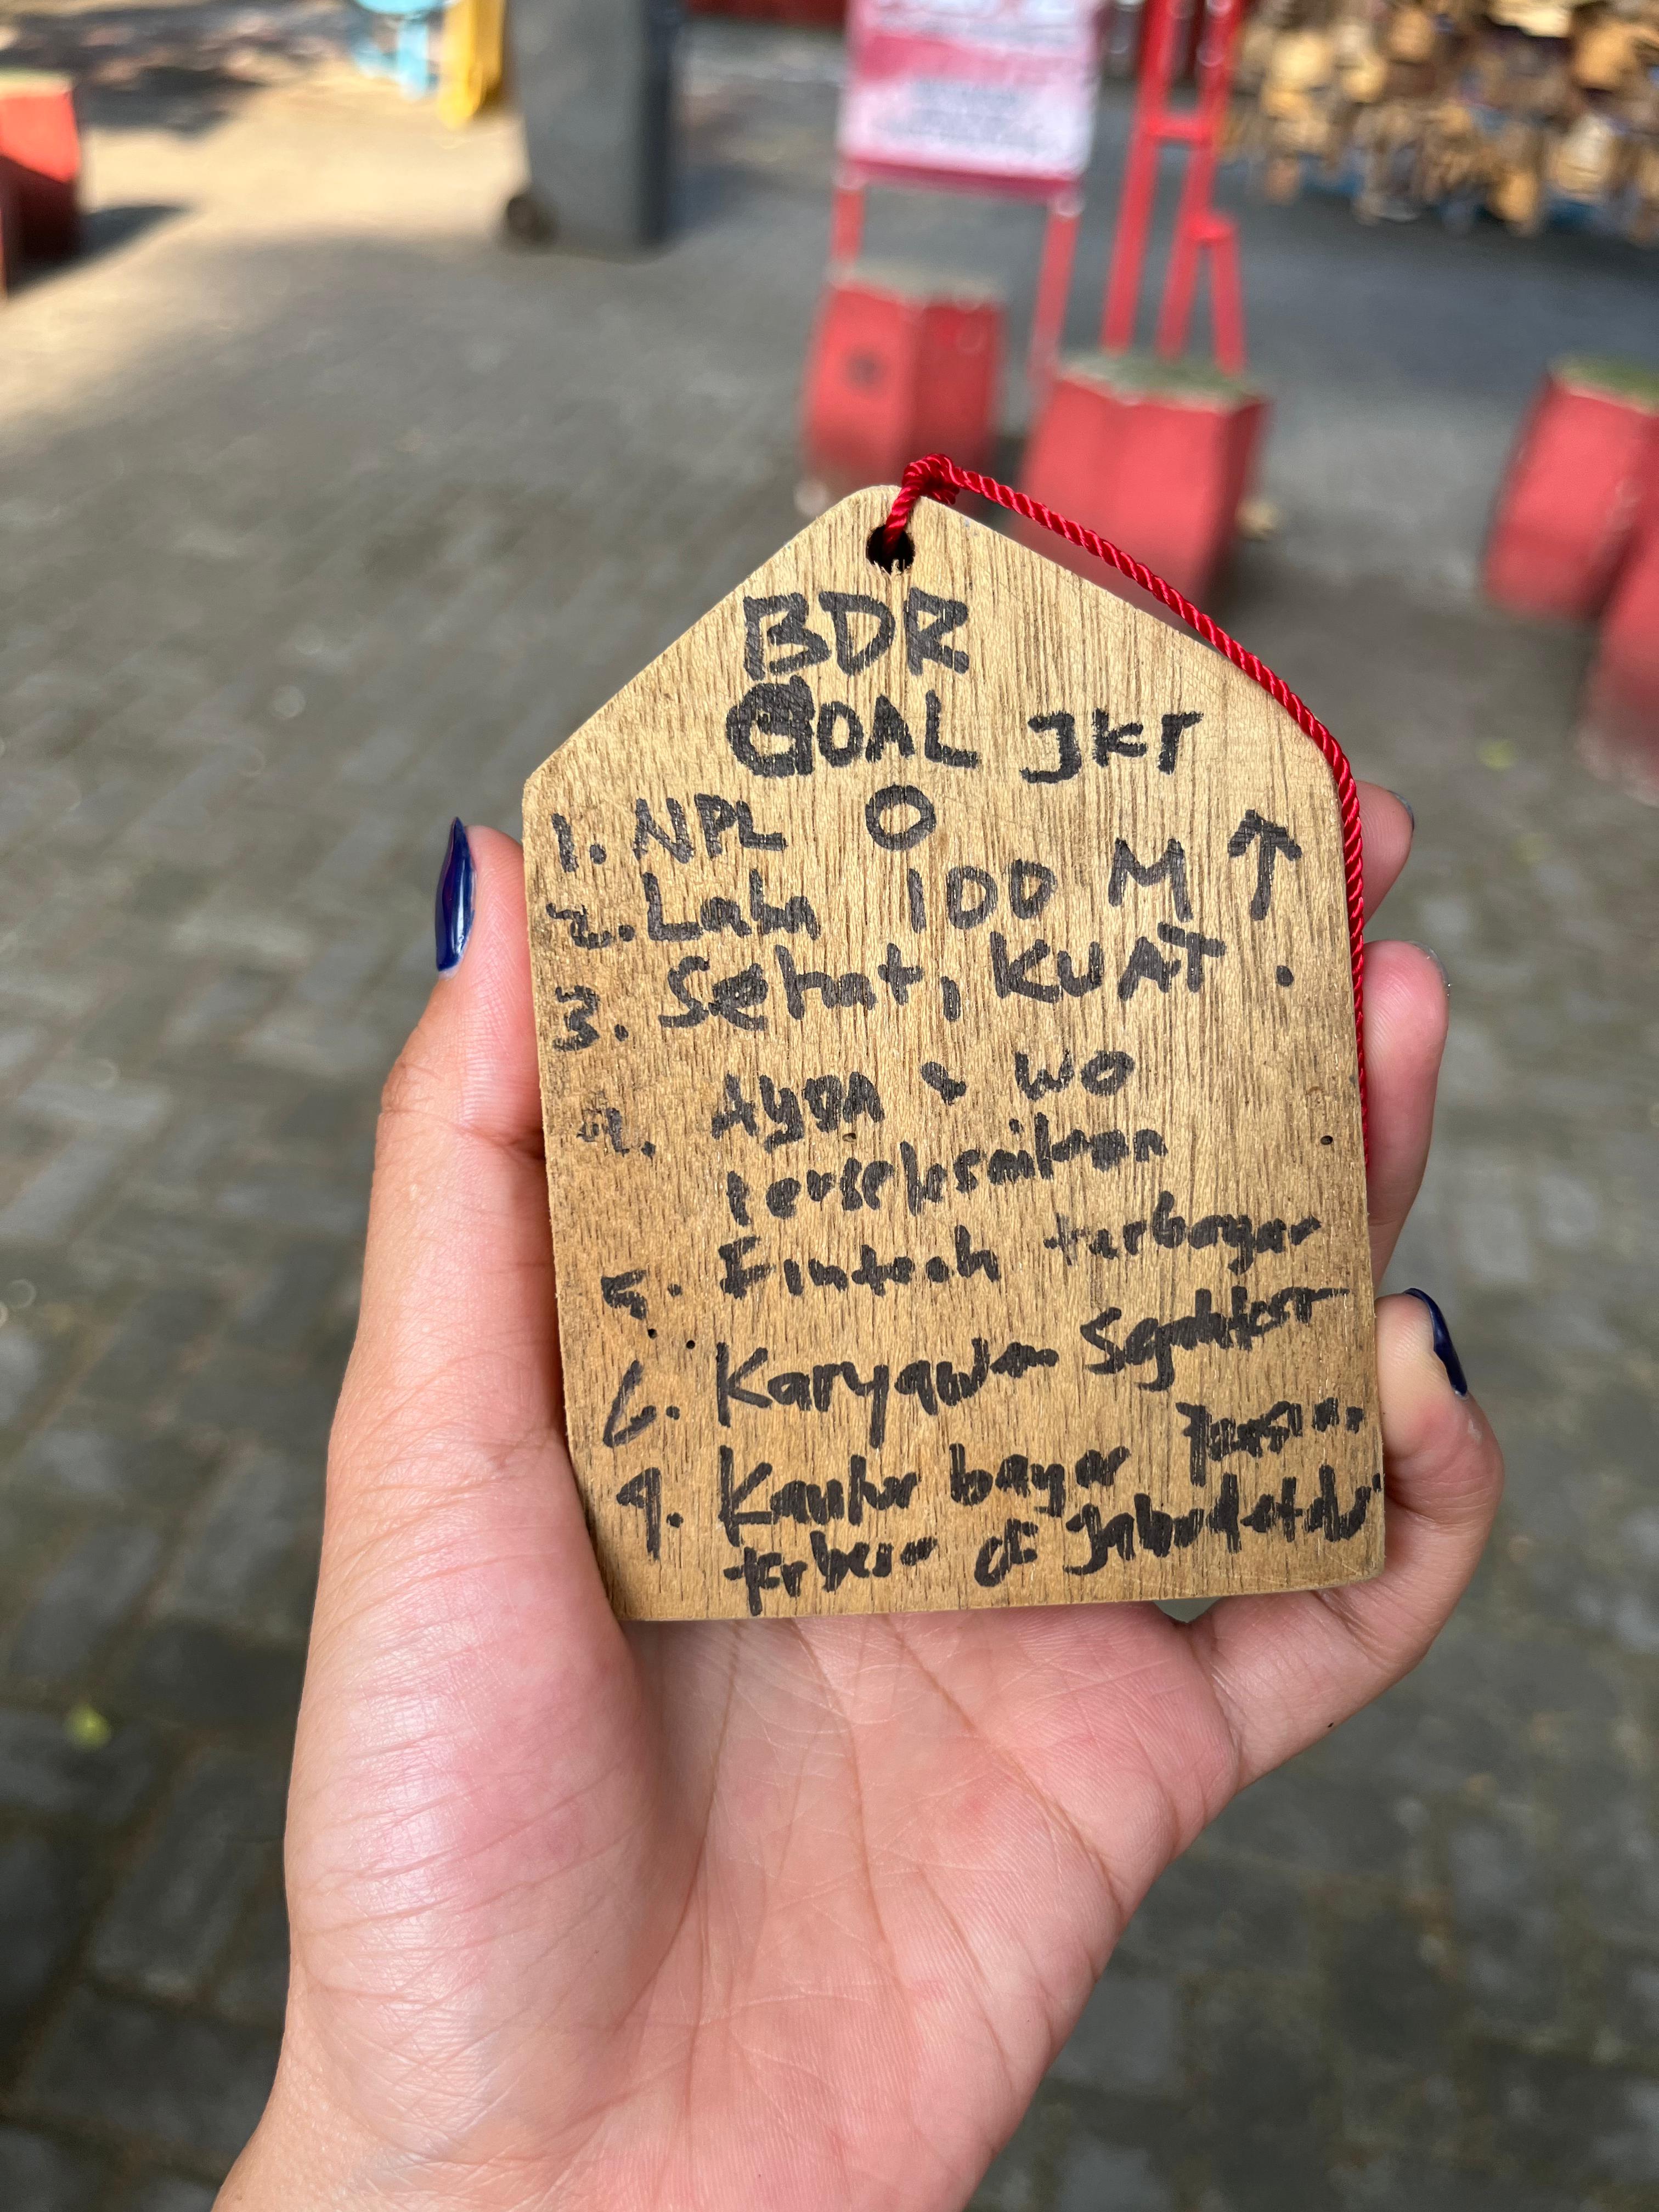 BDR
GOAL JKT
1. NPL 0
2. Laba 100 M ↑
3. Sehat, KUAT.
4. AYDA & WO
terselesaikan
5. Fintech terbayar
6. Karyawan Sejahtera
7. Kantor bayar
terbesar di Jabodetabek